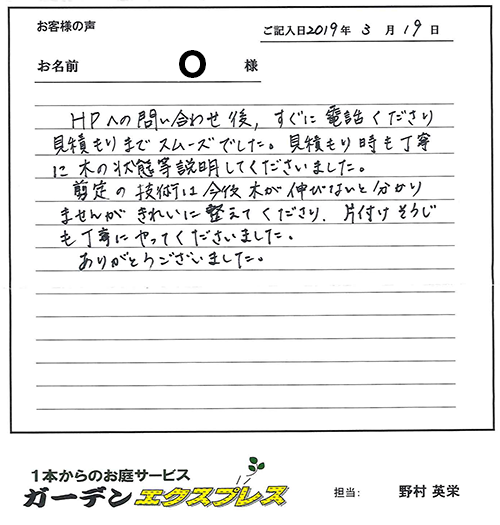 お客様の声
ご記入日2019年 3月 19日
お名前 〇 様
HPへの問い合わせ後、すぐに電話くださり
見積もりまでスムーズでした。見積もり時も丁寧
に木の状態等説明してくださいました。
剪定の技術は今後木が伸びないと分かり
ませんがきれいに整えてくださり、片付けそうじ
も丁寧にやってくださいました。
ありがとうございました。
1本からのお庭サービス
ガーデンエクスプレス
担当: 野村 英栄